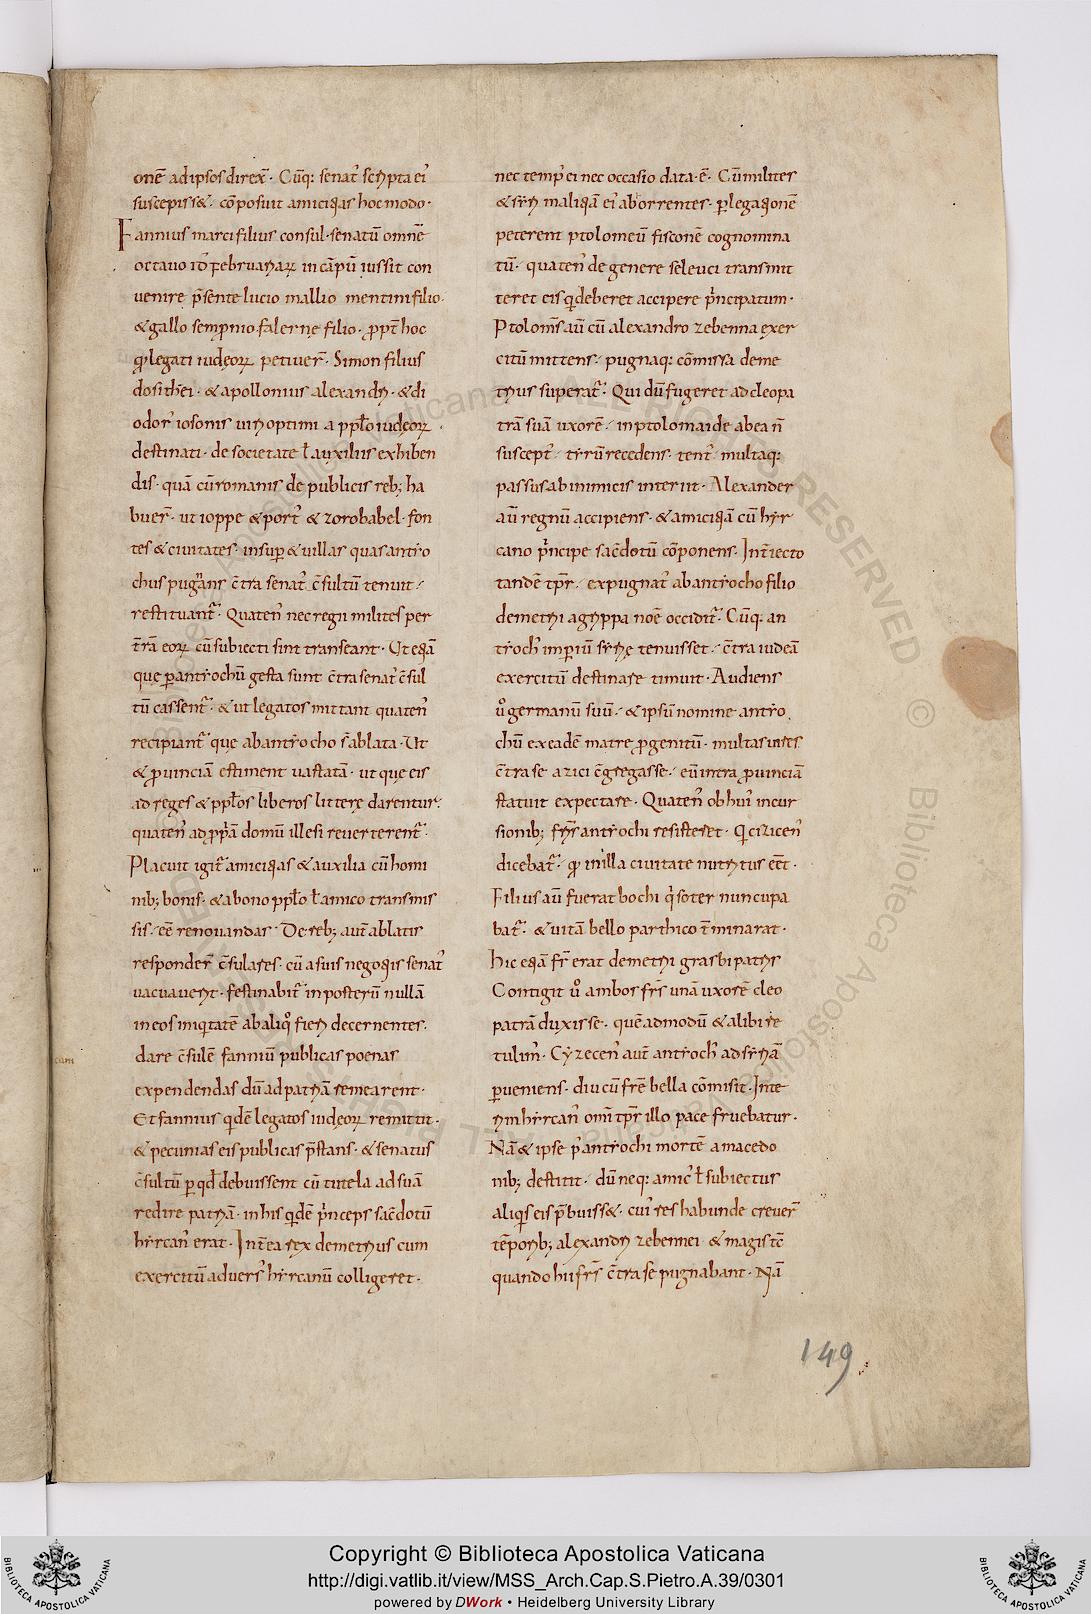 onē ad ipsos direx̄. Cūq; senat᷒ scripta ei᷒
suscepiss&. cōposuit amicitias hoc modo.
Fannius marci filius consul. senatū omnē
octauo id᷒ Februariaꝝ in cāpū iussit con
uenire p̄sente lucio mallio mentini filio.
& gallo sempronio falernę filio. ꝓpt̄ hoc
ꝙ legati iudęoꝝ petiuer̄. Simon filius
dosithei. & apollonius alexandri. & di
odor᷒ iosonis uiri optimi a ppl̄o iudęoꝝ
destinati. de societate ł auxiliis exhiben
dis. quā cū romanis de publicis reb; ha
buer̄. ut ioppe & port᷒ & zorobabel. fon
tes & ciuitates. insup & uillas quas antio
chus pugnans c̄tra senat᷒ c̄sultū tenuit.
restituant᷒. Quaten᷒ nec regii milites per
t̄rā eoꝝ cū subiecti sint transeant. Ut etiā
que ꝑ antiochū gesta sunt c̄tra senat᷒ c̄sul
tū cassent᷒. & ut legatos mittant quaten᷒
recipiant᷒ que ab antiocho s̄ ablata. Ut
& ꝓuinciā estiment uastatā. ut que eis
ad reges & ppl̄os liberos litterę darentur.
quaten᷒ ad ꝓpriā domū illesi reuerterent᷒.
Placuit igit᷒ amicitias & auxilia cū homi
nib; bonis. & a bono ppl̄o ł amico transmis
sis. eē renouandas. De reb; aut̄ ablatis
responder̄ c̄sulares. cū a suis negotiis senat᷒
uacauerit. festinabit᷒ in posterū nullā
in eos iniqitatē ab aliq̊ fieri decernentes.
dare c̄sulē fanniū publicas poenas
expendendas dū ad patriā remearent.
Et fannius qdē legatos iudęoꝝ remittit.
& pecunias eis publicas p̄stans. & senatus
c̄sultū ꝑ qđ debuissent cū tutela ad suā
redire patriā. in his qdē p̄nceps sac̄dotū
hircan᷒ erat. Int̄ea rex demetrius cum
exercitū aduers᷒ hircanū colligeret.
nec temp᷒ ei nec occasio data. ē. Cū milites
& siri maliciā ei᷒ aborrentes. ꝑ legationē
peterent ptolomeū fisconē cognomina
tū. quaten᷒ de genere seleuci transmit
teret eis q deberet accipere p̄ncipatum.
Ptolom᷒s aū cū alexandro zebenna exer
citū mittens. pugnaq; cōmissa deme
trius superat᷒. Qui dū fugeret ad cleopa
trā suā uxorē. in ptolomaide ab ea ñ
suscept᷒. tirū recedens. tent᷒. multaq;
passus ab inimicis interiit. Alexander
aū regnū accipiens. & amicitiā cū hir
cano p̄ncipe sac̄dotū cōponens. Int̄iecto
tandē tp̄r. expugnat᷒ ab antiocho filio
demetri agrippa noē occidit᷒. Cūq; an
tioch᷒ imꝑiū sirię tenuisset. c̄tra iudeā
exercitū destinare timuit. Audiens
u̾ germanū suū. & ipsū nomine antio
chū ex eadē matre ꝓgenitū. multas uires
c̄tra se a zici c̄gregasse. eū intra ꝓuinciā
statuit expectare. Quaten᷒ ob hui᷒ incur
sionib; fr̄is antiochi resisteret. q cizicen᷒
dicebat᷒. ꝙ in illa ciuitate nutritus eēt.
Filius aū fuerat bochi q̊ soter nuncupa
bat᷒. & uitā bello parthico t̄minarat.
hic etiā fr̄ erat demetri grasbipatris
Contigit u̾ ambos fr̄s unā uxorē cleo
patrā duxisse. quēadmodū & alibi re
tulim᷒. Cyzecen᷒ aut̄ antioch᷒ ad siriā
ꝑueniens. diu cū fr̄e bella cōmisit. Inte
rim hircan᷒ omi tp̄r illo pace fruebatur.
Nā & ipse p᷒ antiochi mortē a macedo
nib; destitit. dū neq; amic᷒ ł subiectus
aliqis eis p̄buiss&. cui᷒ res habunde creuer̄
tēporib; alexandri zebennei. & magis tc̄
quando hii fr̄s c̄tra se pugnabant. Nā
149
Copyright © Biblioteca Apostolica Vaticana
http://digi.vatlib.it/view/MSS_Arch.Cap.S.Pietro.A.39/0301
powered by DWork • Heidelberg University Library